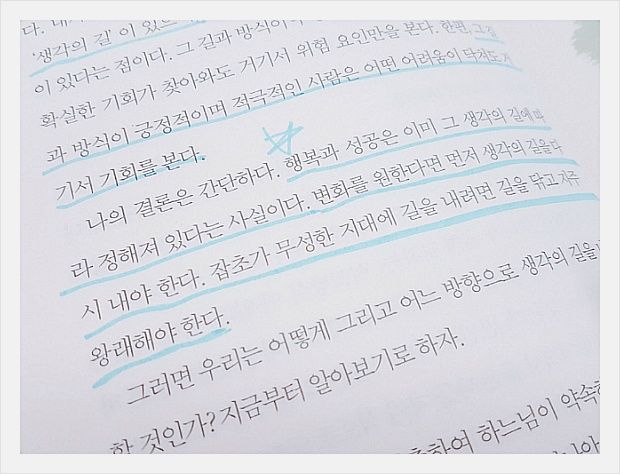 다.
'생각의 길'이 있
이 있다는 점이다. 그 길과 방식이
확실한 기회가 찾아와도 거기서 위험 요인만을 본다. 한편, 그 길
과 방식이 긍정적이며 적극적인 사람은 어떤 어려움이 닥쳐도 거
기서 기회를 본다.
나의 결론은 간단하다. 행복과 성공은 이미 그 생각의 길에 따
라 정해져 있다는 사실이다. 변화를 원한다면 먼저 생각의 길을 다
시 내야 한다. 잡초가 무성한 지대에 길을 내려면 길을 닦고 자주
왕래해야 한다.
그러면 우리는 어떻게 그리고 어느 방향으로 생각의 길을
할 것인가? 지금부터 알아보기로 하자.
하여 하느님이 약속